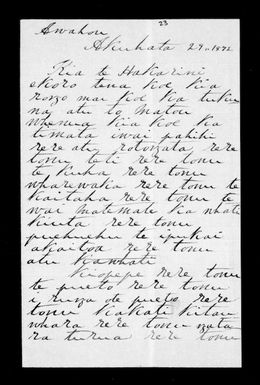 23
Awahou
Akuhata 27.. 1872
Kia te Hakarini
ekoro tena koe kia
rongo mai koe kia tukua
na atu to matou
whenua kia koe kia
timata i wai pahihi
rere atu rotorata rere
tonu te ti rere tonu
te kuha rere tonu
wharewaka rere tonu te
kaitaha rere tonu te
wai matemate kia whati
kiuta rere tonu
puehuehu te upukai
akaitoa rere tonu
atu kawhati
kiopepe rere tonu
te pueto rere tonu
i runga te pueto rere
tonu kakati kiitau
whara rere tonu
ra turua rere tonu